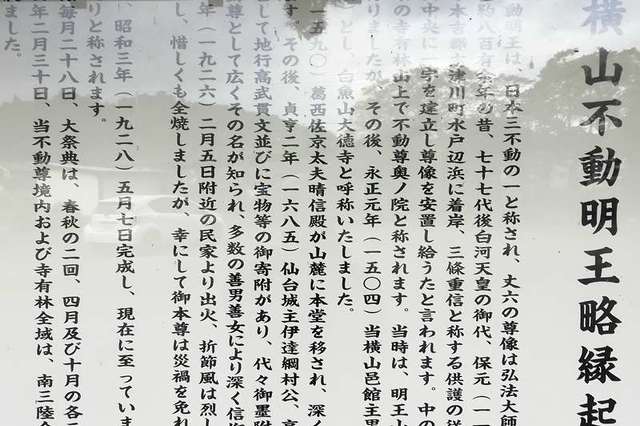 横山不動明王略縁起
動明王は、日本三不動の一と称され、丈六の尊像は弘法大師
約八百有余年の昔、七十七代後白河天皇の御代、保元（一一
本吉郡 津川町水戸辺浜に着岸、三條重信と称する供護の送
中央に 宇を建立し尊像を安置し給うたと言われます。中の
の寺有林山上で不動尊奥ノ院と称されます。当時は、明王山
りましたが、その後、永正元年（一五〇四）当横山邑館主男
とし、白魚山大徳寺と呼称いたしました。
五九〇）葛西佐京太夫晴信殿が山麓に本堂を移され、深く
す。その後、貞享二年（一六八五）仙台城主伊達綱村公、高
として地行高武貫文並びに宝物等の御寄附があり、代々御墨附
尊として広くその名が知られ、多数の善男善女により深く信
年（一九二六）二月五日附近の民家より出火、折節風は烈し
し、惜しくも全焼しましたが、幸にして御本尊は災禍を免れ
、昭和三年（一九二八）五月七日完成し、現在に至っていま
りと称されます。
毎月二十八日、大祭典は、春秋の二回、四月及び十月の各二
年二月三十日、当不動尊境内および寺有林全域は、南三陸
ました。